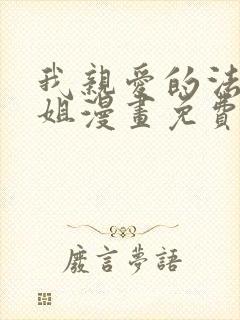 我親愛的法
姐漫畫免費
廢言夢語